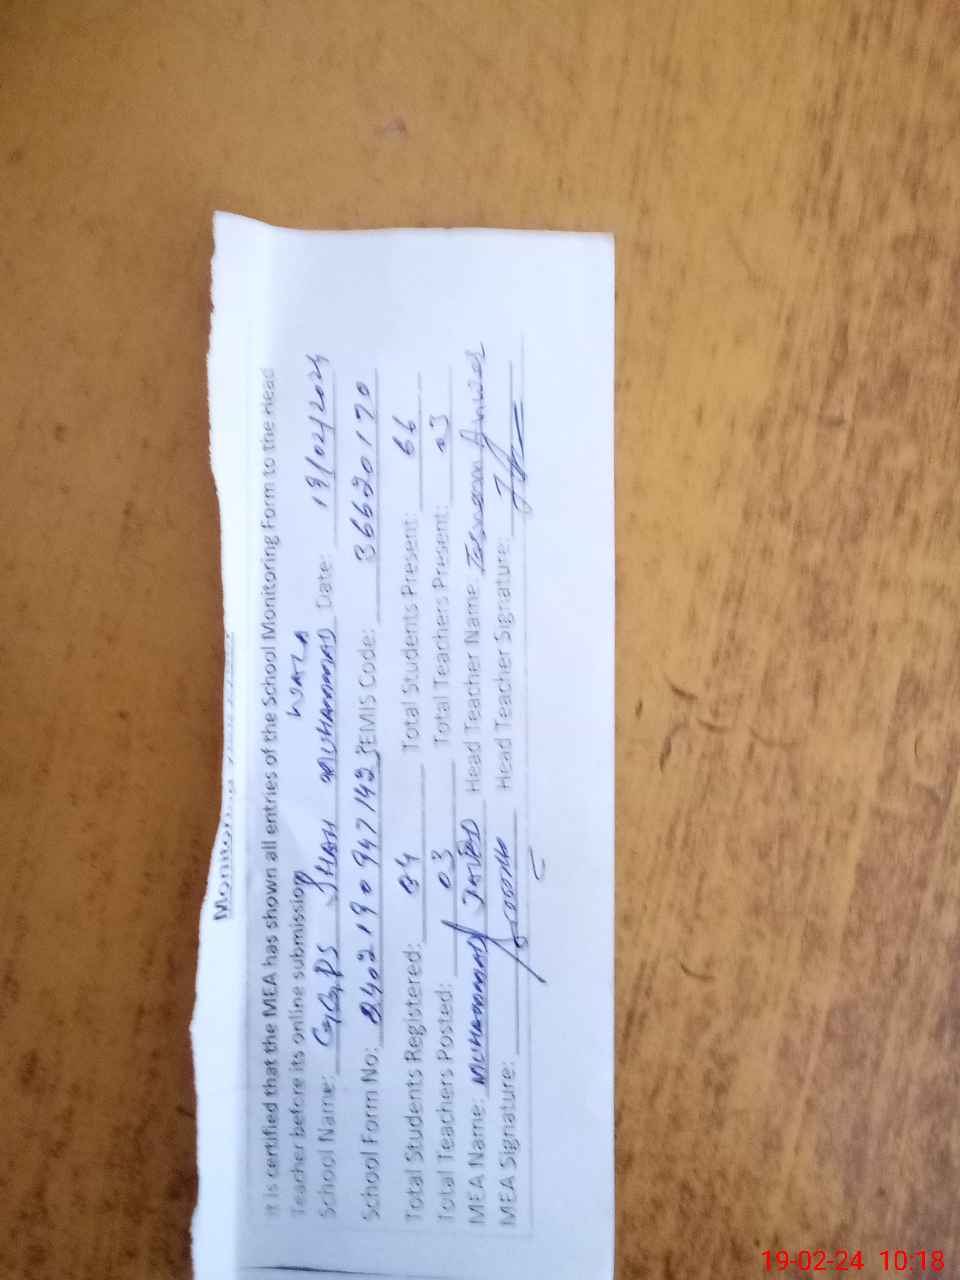 It is certified that the MEA has shown all entries of the School Monitoring Form to the Head
Teacher before its online submission
WALA
School Name: GGPS SHAH MUHAMMAD Date: 19/02/2024
School Form No: 2402190947142 SEMIS Code: 36620170
Total Students Registered: 94 Total Students Present: 66
Total Teachers Posted: 03 Total Teachers Present: 03
MEA Name: MUHAMMAD JAVED Head Teacher Name: Tasneem Anwer
MEA Signature: Head Teacher Signature:
19-02-24 10:18